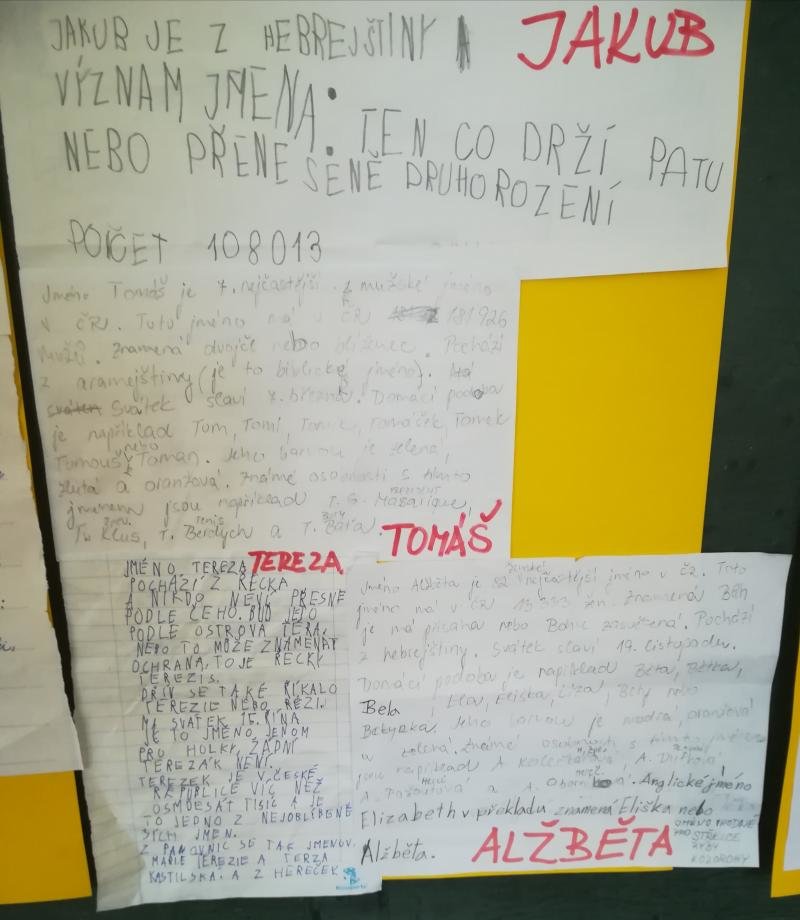 JAKUB JE Z HEBREJŠTINY
JAKUB
VÝZNAM JMÉNA:
TEN CO DRŽÍ PATU
NEBO PŘENESENĚ DRUHOROZENÍ
POČET 108013
Jméno Tomáš je 7. nejčastější mužské jméno
v ČR. Toto jméno má v ČR 181926
mužů. Znamená dvojče nebo blíženec. Pochází
z aramejštiny (je to biblické jméno).
Svátek slaví 7. března. Domácí podoba
je například Tom, Tomi, Tomík, Tomáček, Tomek
Tomouš nebo Toman. Jeho barvou je zelená,
žlutá a oranžová. Známé osobnosti s tímto
jménem jsou například T. G. Masarique,
T. Klus, T. Berdych a T. Baťa.
TOMÁŠ
JMÉNO TEREZA
TEREZA
POCHÁZÍ Z ŘECKA
A NIKDO NEVÍ PŘESNĚ
PODLE ČEHO. BUĎ JE TO
PODLE OSTROVA TÉRA,
NEBO TO MŮŽE ZNAMENAT
OCHRANA, TO JE ŘECKY
TEREZIS.
DŘÍV SE TAKÉ ŘÍKALO
TEREZIE NEBO RÉZI.
MÁ SVÁTEK 15. ŘÍJNA
JE TO JMÉNO JENOM
PRO HOLKY, ŽÁDNÍ
TEREZÁK NENÍ.
TEREZEK JE V ČESKÉ
REPUBLICE VÍC NEŽ
OSMDESÁT TISÍC A JE
TO JEDNO Z NEJOBLÍBENĚ
JŠÍCH JMEN.
Z PANOVNIC SE TAK JMENOV.
MARIE TEREZIE A TERZA
KASTILSKÁ. A Z HEREČEK
Jméno Alžběta je 52. nejčastější ženské jméno v ČR. Toto
jméno má v ČR žen. Znamená Bůh
je má přísaha nebo Bohu zasvěcená. Pochází
z hebrejštiny. Svátek slaví 19. listopadu.
Domácí podoba je například Běta, Bětka,
Bela, Ela, Eliška, Líza, Bety nebo
Betynka. Jeho barvou je modrá, oranžová
a zelená. Známé osobnosti s tímto jménem
jsou například A.
A. a A. Anglické jméno
Elizabeth v překladu znamená Eliška nebo
Alžběta.
ALŽBĚTA
STŘELCE
RYBY
KOZOROHY